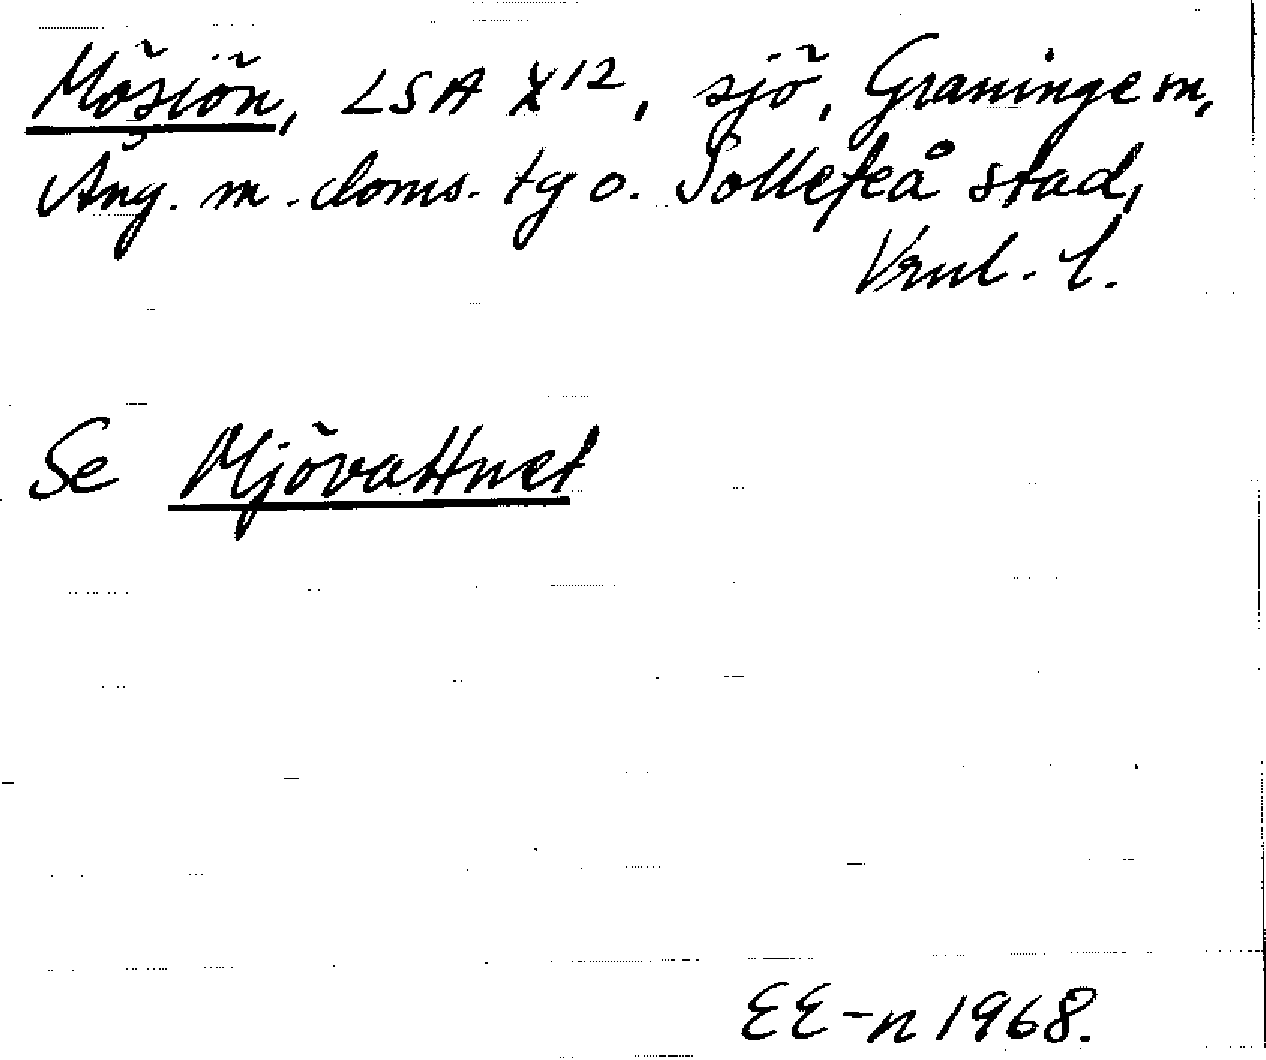 Mösiön, LSA X12, sjö, Graninge m,
Ång. m. doms. tg o. Sollefteå stad,
Vrnl. l.
Se Mjövattnet
EE-n 1968.